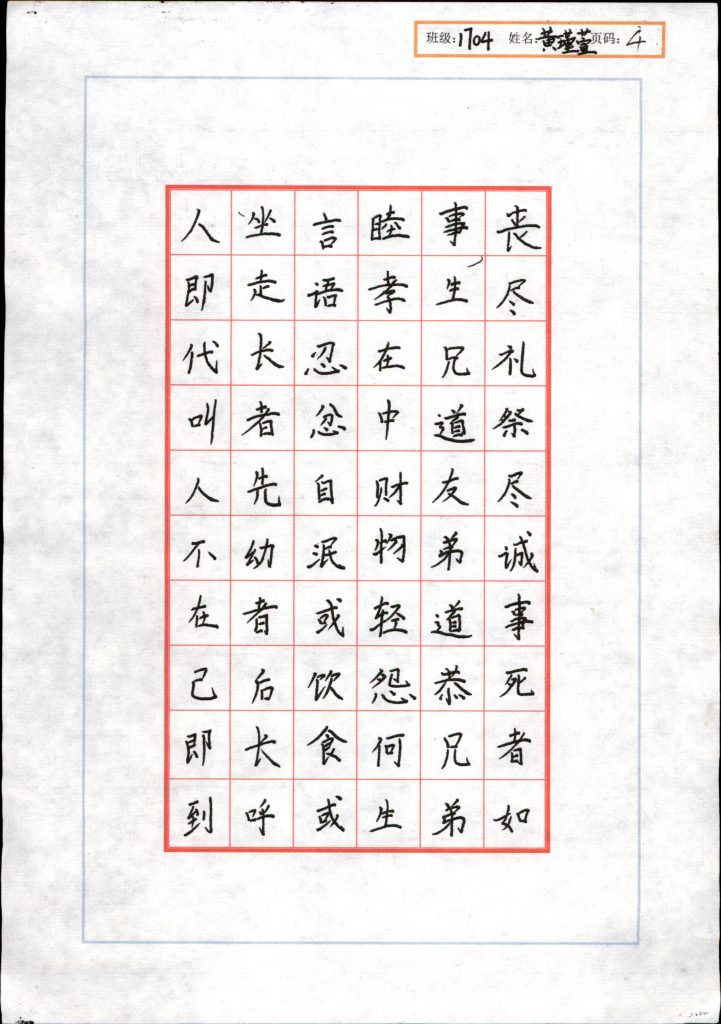 班级:1704 姓名:黄瑾萱 页码:4
丧尽礼祭尽诚事死者如
事生兄道友弟道恭兄弟
睦孝在中财物轻怨何生
言语忍忿自泯或饮食或
坐走长者先幼者后长呼
人即代叫人不在己即到